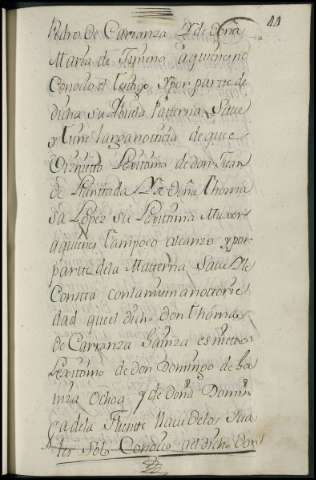 44
Pedro de Carranza y de Doña
Maria de
Conocio el testigo y por parte de
dicha su Abuela Paterna save
y tiene larga noticia de que es
lexitimo de don Juan
de y de Doña Thoma
sa Lopez su lexitima Muxer
a quien tampoco alcanzo y por
parte dela Materna save y le
Consta con tamvien notorie
dad que el dicho Don Thomas
de Carranza Gainza es nieto
lexitimo de don Domingo de Ga
inza Ochoa y de doña Domin
ga dela Fuente
solo Conocio al dicho Don